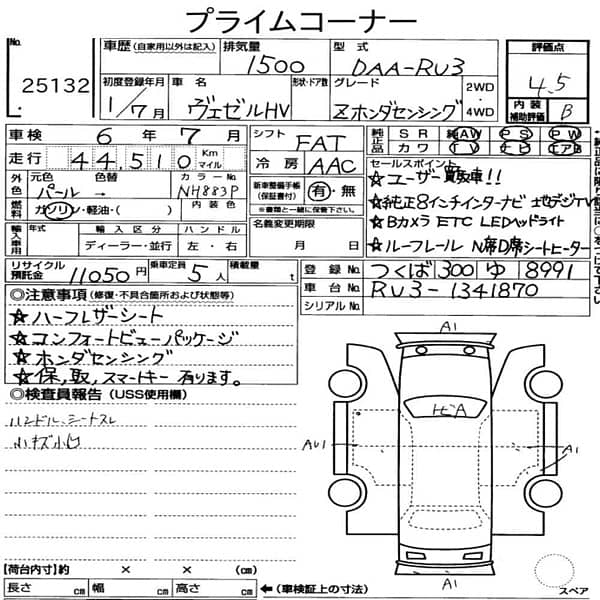 プライムコーナー
No.
25132
車歴 (自家用以外は記入)
排気量
1500
型式
DAA-RU3
評価点
4.5
内装補助評価
B
初度登録年月
1/7月
車名
ヴェゼルHV
形状・ドア数
グレード
Zホンダセンシング
2WD
・
4WD
車検 6年7月
走行 44,510 Km マイル
シフト FAT
冷房 AAC
純正品 SR 純AW PS PW
カワ TV ナビ エアB
セールスポイント
☆ユーザー買取車!!
☆純正8インチインターナビ フルセグデジTV
☆Bカメラ ETC LEDヘッドライト
☆ルーフレール N席D席シートヒーター
外色 元色 色替 カラーNo.
パール → NH883P
燃料 ガソリン・軽油・( )
新車整備手帳
(保証書付)
有・無
※書類と一緒に保管下さい。
輸入車用 年式 輸入区分 ハンドル
ディーラー・並行 左・右
名義変更期限
月 日
リサイクル預託金 11050円
乗車定員 5人
積載量 t
登録No. つくば 300 ゆ 8991
車台No. RU3-1341870
シリアルNo.
◎注意事項 (修復・不具合箇所および状態等)
☆ハーフレザーシート
☆コンフォートビューパッケージ
☆ホンダセンシング
☆保,取,スマートキー 有ります。
◎検査員報告 (USS使用欄)
ハンドル、シートスレ
小キズ小凹
A1
トビA
AU1
A1
A1
スペア
【荷台内寸】約 × × (cm)
長さ cm 幅 cm 高さ cm ←(車検証上の寸法)